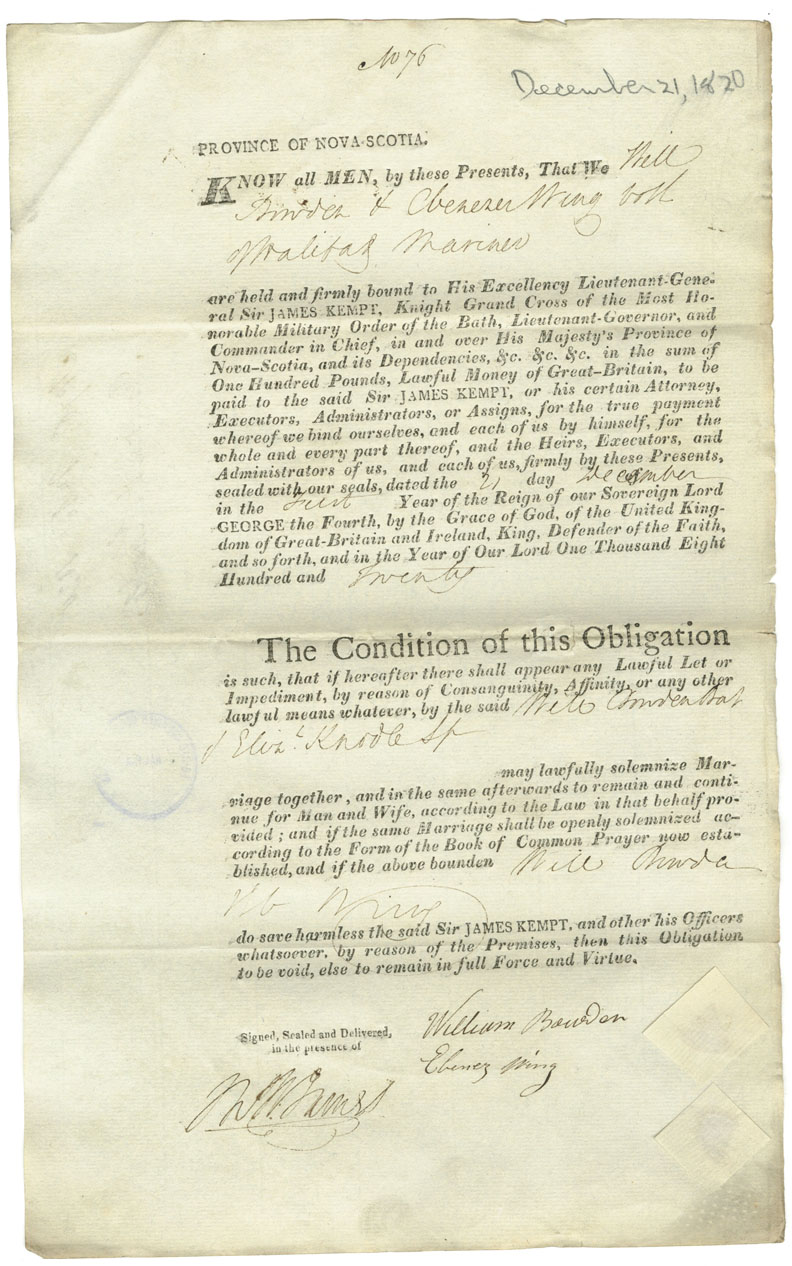 No 76
December 21, 1820
PROVINCE OF NOVA-SCOTIA.
KNOW all MEN, by these Presents, That We Will
Bowden & Ebenezer Wing both
of Halifax Mariner
are held and firmly bound to His Excellency Lieutenant-Gene-
ral Sir JAMES KEMPT, Knight Grand Cross of the Most Ho-
norable Military Order of the Bath, Lieutenant-Governor, and
Commander in Chief, in and over His Majesty's Province of
Nova-Scotia, and its Dependencies, &c. &c. &c. in the sum of
One Hundred Pounds, Lawful Money of Great-Britain, to be
paid to the said Sir JAMES KEMPT, or his certain Attorney,
Executors, Administrators, or Assigns, for the true payment
whereof we bind ourselves, and each of us by himself, for the
whole and every part thereof, and the Heirs, Executors, and
Administrators of us, and each of us, firmly by these Presents,
sealed with our seals, dated the 21 day of December
in the First Year of the Reign of our Sovereign Lord
GEORGE the Fourth, by the Grace of God, of the United King-
dom of Great-Britain and Ireland, King, Defender of the Faith,
and so forth, and in the Year of Our Lord One Thousand Eight
Hundred and Twenty
The Condition of this Obligation
is such, that if hereafter there shall appear any Lawful Let or
Impediment, by reason of Consanguinity, Affinity, or any other
lawful means whatever, by the said Will Bowden Bat
& Eliza. Knodle Sp
may lawfully solemnize Mar-
riage together, and in the same afterwards to remain and conti-
nue for Man and Wife, according to the Law in that behalf pro-
vided; and if the same Marriage shall be openly solemnized ac-
cording to the Form of the Book of Common Prayer now esta-
blished, and if the above bounden Will Bowden
Wing
do save harmless the said Sir JAMES KEMPT, and other his Officers
whatsoever, by reason of the Premises, then this Obligation
to be void, else to remain in full Force and Virtue.
Signed, Sealed and Delivered,
in the presence of
William Bowden
Ebenez Wing